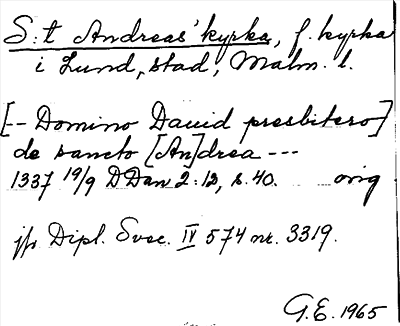 S:t Andreas' kyrka, f. kyrka
i Lund, stad, Malm. l.
[- Domino Dauid presbitero]
de sancto [An]drea ---
1337 19/9 DDan 2:12, s. 40. orig
jfr Dipl. Svec. IV 574 nr. 3319.
G.E. 1965